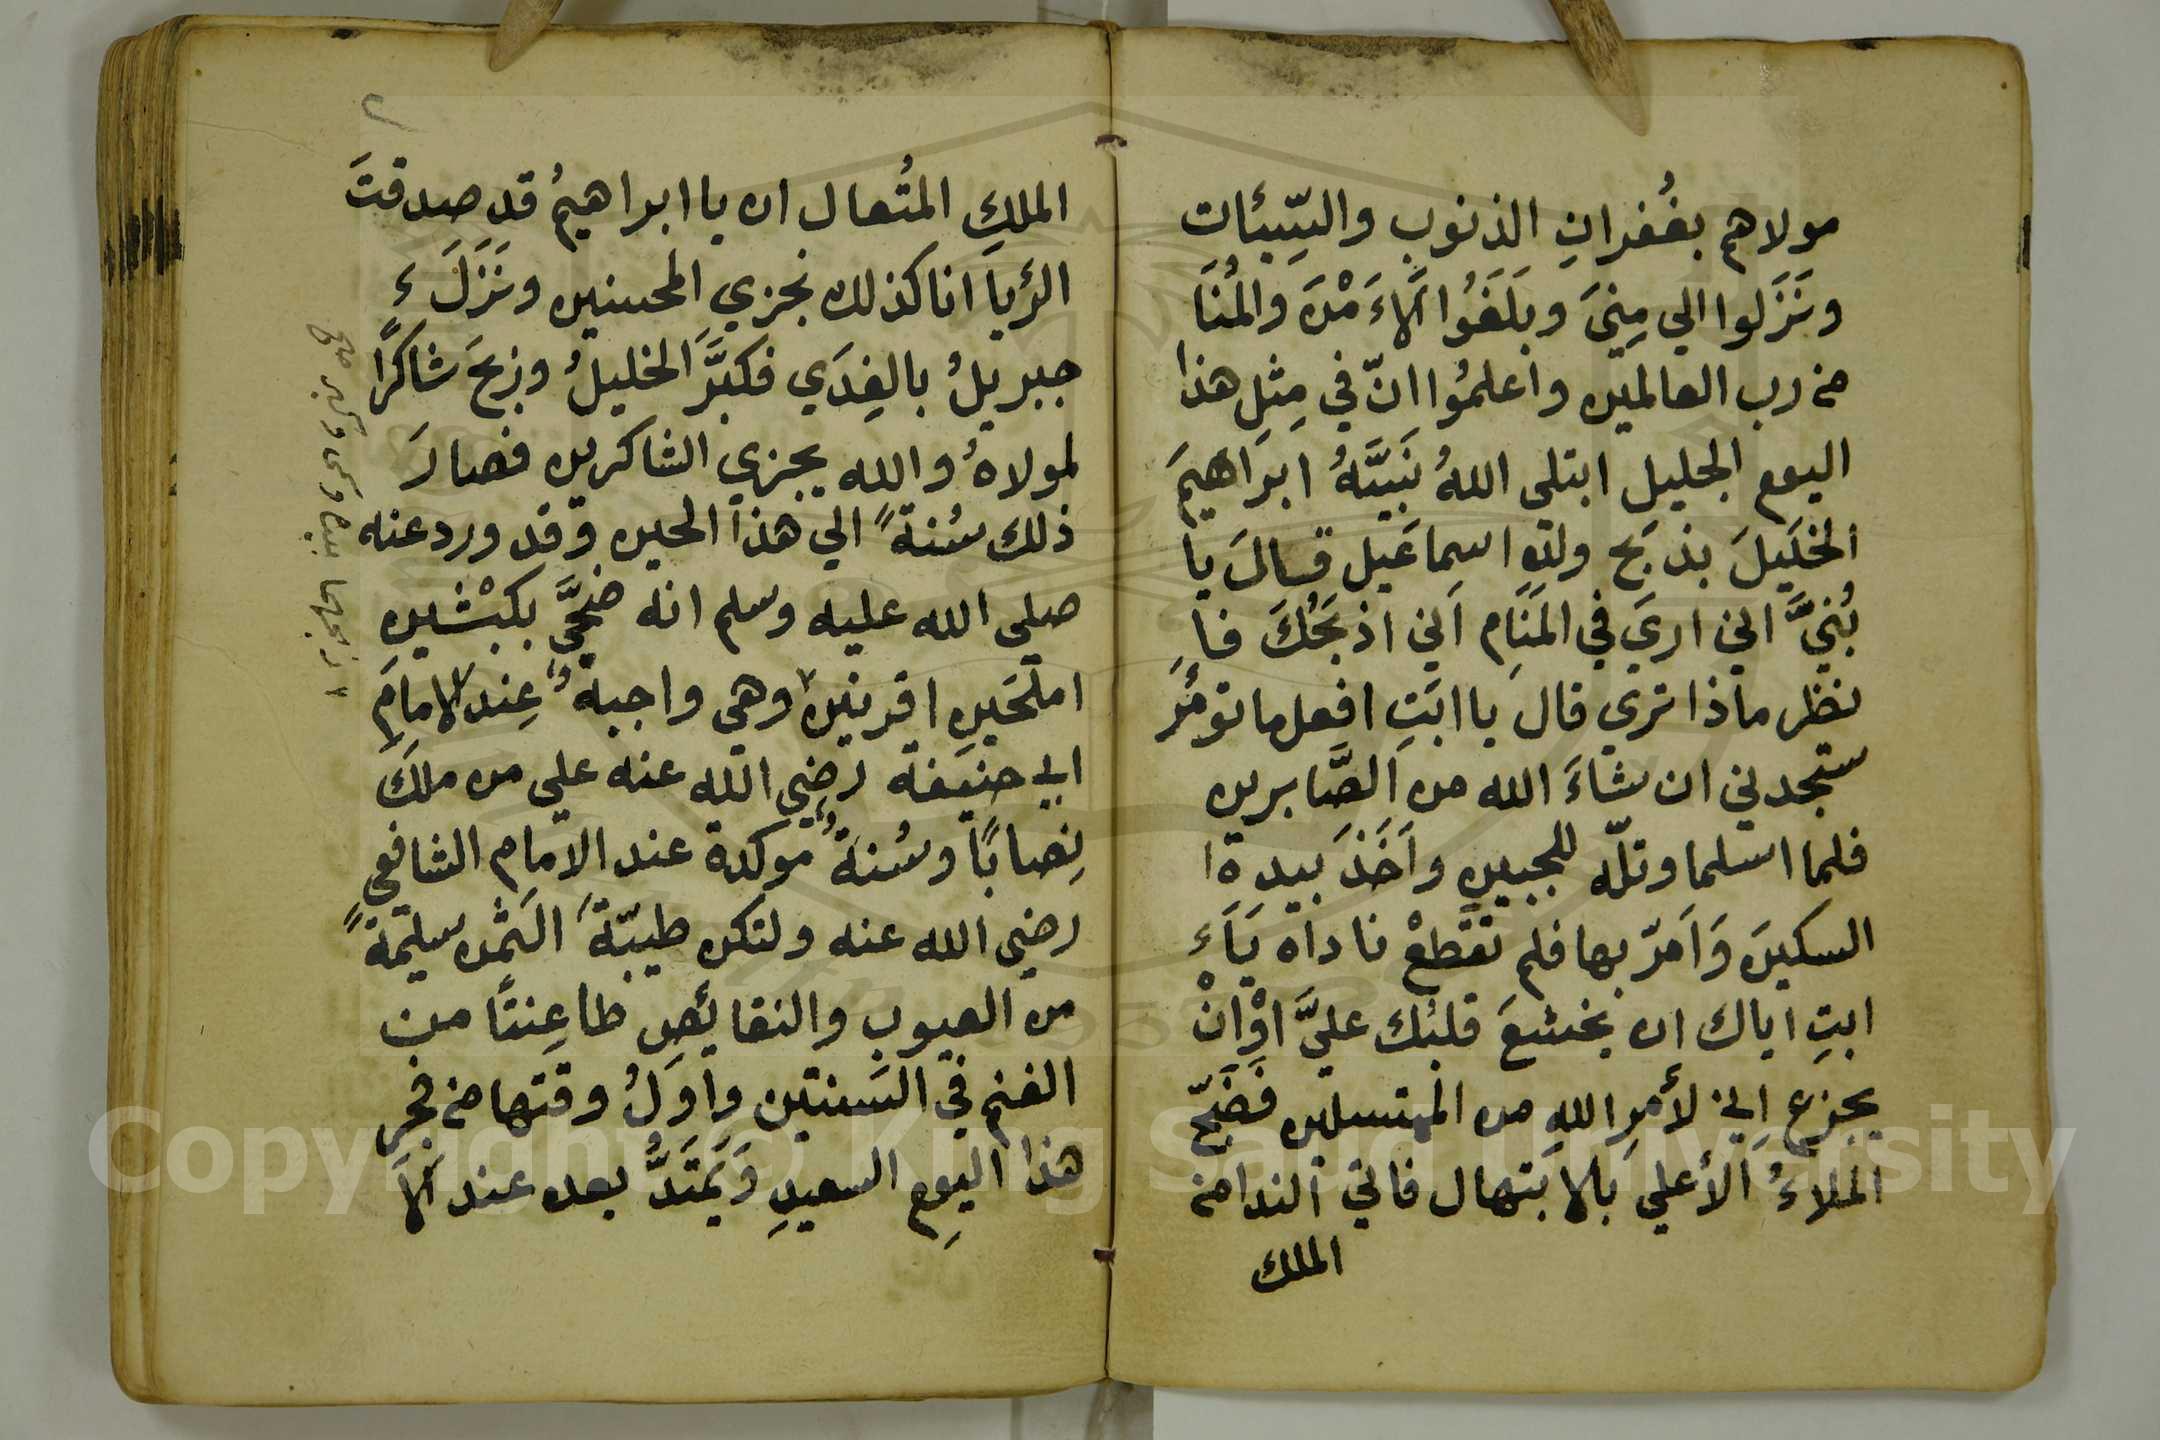 مولاهم بغُفرانِ الذنوبِ والسِّيئاتِ
ونَزَلوا الي مِنيَ وبلَغَوُا الاءَمْنَ والمُنَا
من رب العالمين واعلموُا انّ في مِثلِ هذا
اليوم الجليل ابتلي اللهُ نَبيَّهُ ابرَاهيمَ
الخليلَ بذبح ولدهِ اسماعيل فقالَ يا
بُنيَّ اني اريَ في المَنَامِ اَني اذبحُكَ فا
نظر ماذا تري قال يا ابَتِ افعل ما تومُرَ
ستجدني ان شاءَ الله من الصَّابرين
فلما اسلما وتلّه للجبين واَخَذَ بيدِهِ
السكينَ وَاَمرّ بها فلم تقطعْ ناداه يَاَء
ابتِ اياك ان يخشعَ قلبُك عليَّ اوْانْ
يجزع اِني لأمرِ اللهِ من المستسلمين فَضَجّ
الملاءُ الأعلي بالابتهال فاتي الندا من
الملك
الملكِ المتُعال ان يا ابراهيمُ قد صدقتَ
الرُيا انا كذلك نجزي المحسنين ونَزَلَء
جبريلُ بالفِدَي فكبَّرَ الخليلُ وذبحَ شاكرًا
لمولاهُ والله يجزي الشاكرين فصارَ
ذلك سُنةً الي هذا الحين وقد ورد عنه
صلي الله عليه وسلم انه ضحَّي بكبْشينِ
املحَينِ اقرنين وهي واجبةٌ عِند الامامِ
ابي حنيفة رضي الله عنه علي من ملكَ
نِصابًا وسُنةٌ موكدة عند الامامِ الشافعي
رضي الله عنه ولتكن طيبّةَ الثمن سليمةً
من العيوب والنقائصِ طاعِنتًا من
الغنم في السَنتين واَولُ وقتها من فجرِ
هذا اليومِ السعيدِ وَيَمتَدُّ بعده عند الاَ
Copyright © King Saud University